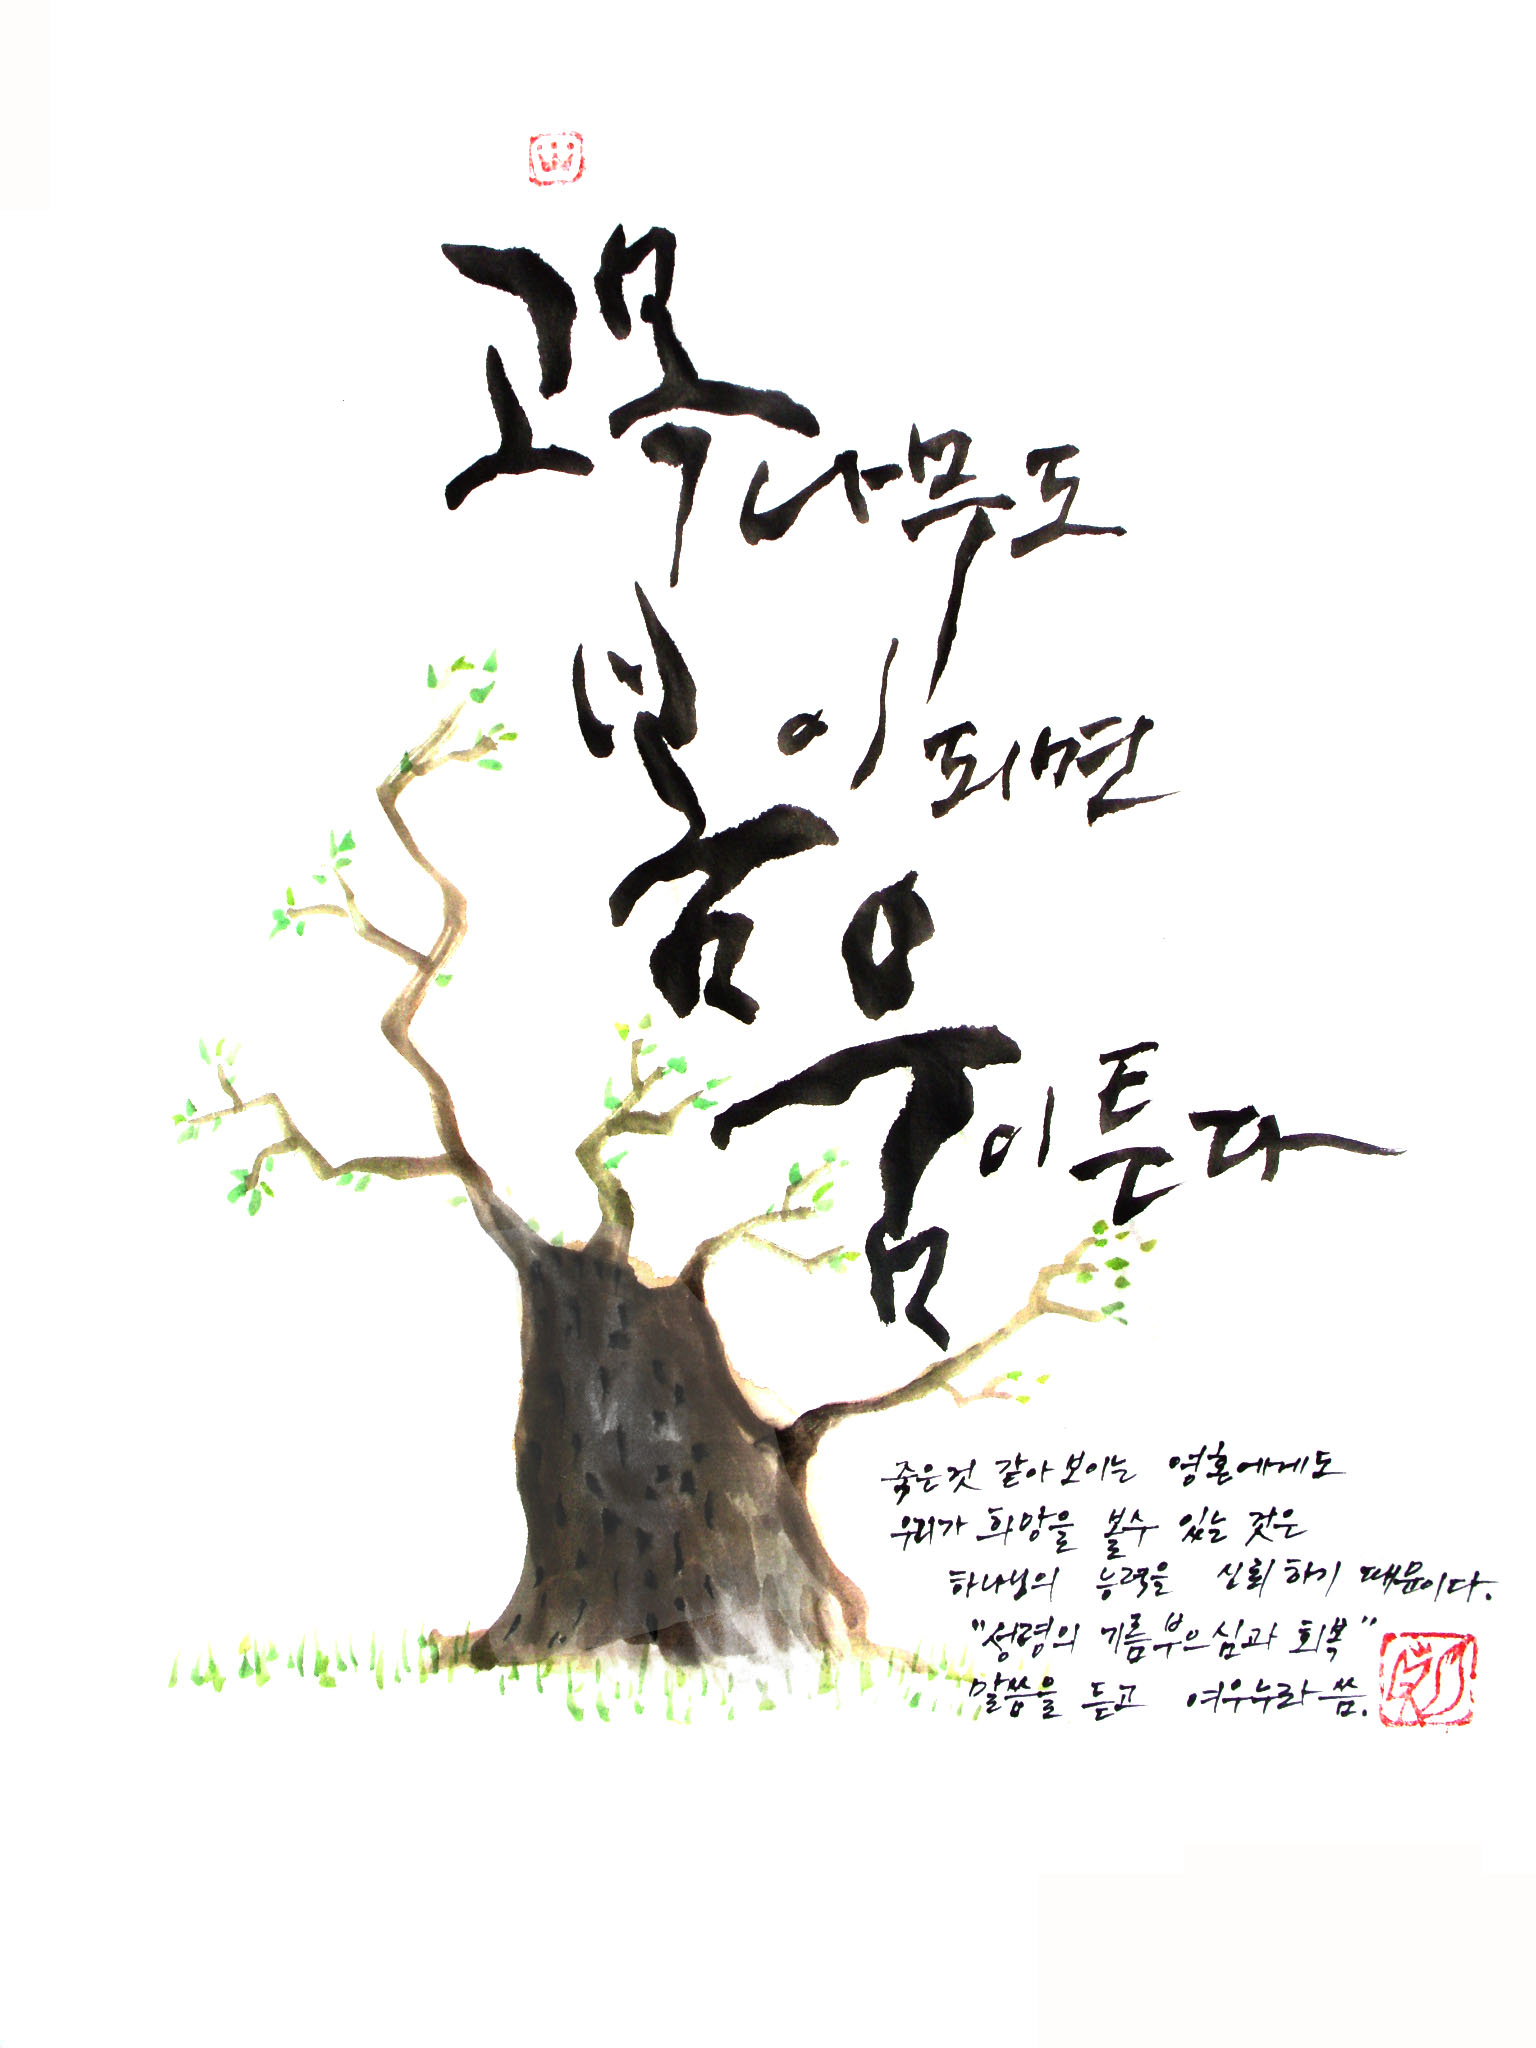 고목나무도
봄이 되면
움이 튼다
죽은것 같아 보이는 영혼에게도
우리가 희망을 볼수 있는 것은
하나님의 능력을 신뢰하기 때문이다.
"성령의 기름부으심과 회복"
말씀을 듣고 여우누라 씀.